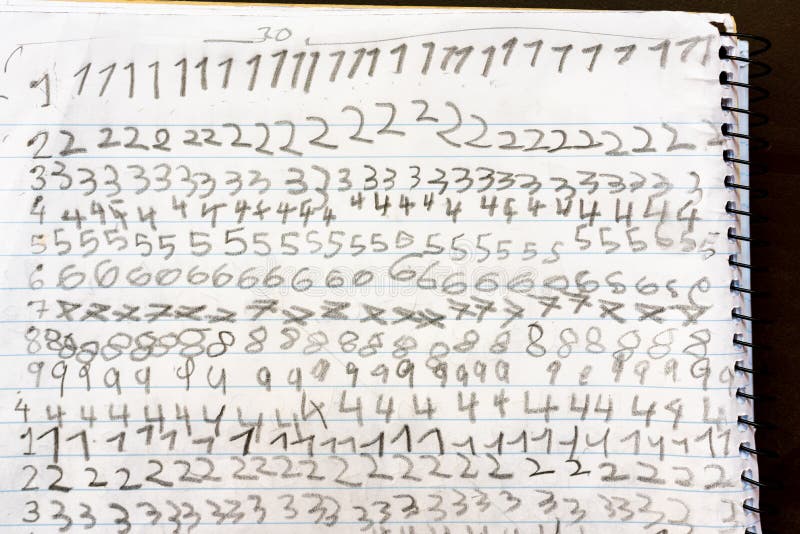 30
1 1 1 1 1 1 1 1 1 1 1 1 1 1 1 1 1 1 1 1 1 1 1 1 1 1
2 2 2 2 2 2 2 2 2 2 2 2 2 2 2 2 2 2 2 2 2 2 2 2 2 2
3 3 3 3 3 3 3 3 3 3 3 3 3 3 3 3 3 3 3 3 3 3 3 3 3 3
4 4 4 4 4 4 4 4 4 4 4 4 4 4 4 4 4 4 4 4 4 4 4 4 4
5 5 5 5 5 5 5 5 5 5 5 5 5 5 5 5 5 5 5 5 5 5 5 5 5 5
6 6 6 6 6 6 6 6 6 6 6 6 6 6 6 6 6 6 6 6 6 6 6 6 6
7 7 7 7 7 7 7 7 7 7 7 7 7 7 7 7 7 7 7 7 7 7 7 7
8 8 8 8 8 8 8 8 8 8 8 8 8 8 8 8 8 8 8 8 8 8 8 8 8
9 9 9 9 9 9 9 9 9 9 9 9 9 9 9 9 9 9 9 9 9 9 9 9
4 4 4 4 4 4 4 4 4 4 4 4 4 4 4 4 4 4 4 4 4 4 4 4
1 1 1 1 1 1 1 1 1 1 1 1 1 1 1 1 1 1 1 1 1 1 1 1 1
2 2 2 2 2 2 2 2 2 2 2 2 2 2 2 2 2 2 2 2 2 2 2 2
3 3 3 3 3 3 3 3 3 3 3 3 3 3 3 3 3 3 3 3 3 3 3 3